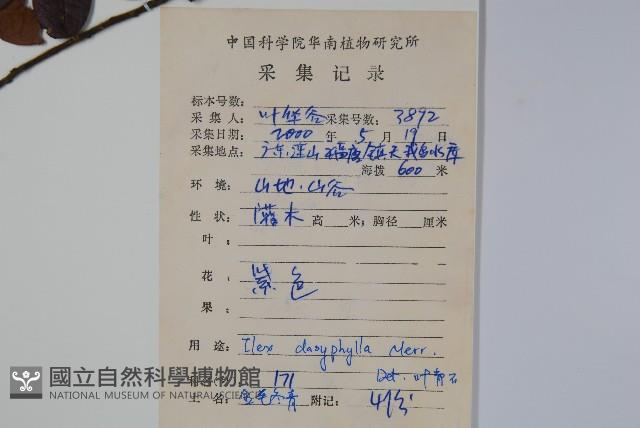 中国科学院华南植物研究所
采集记录
标本号数:
采集人: 叶华谷 采集号数: 3892
采集日期: 2000 年 5 月 19 日
采集地点: 广东,连山 福唐镇天 水库
海拨 600 米
环境: 山地.山谷
性状: 灌木 高 米; 胸径 厘米
叶:
花: 紫色
果:
用途: Ilex dasyphylla Merr.
國立自然科學博物館
171 Det. 叶
NATIONAL MUSEUM OF NATURAL SCIENCE
土名: 金毛冬青 附记: 4份